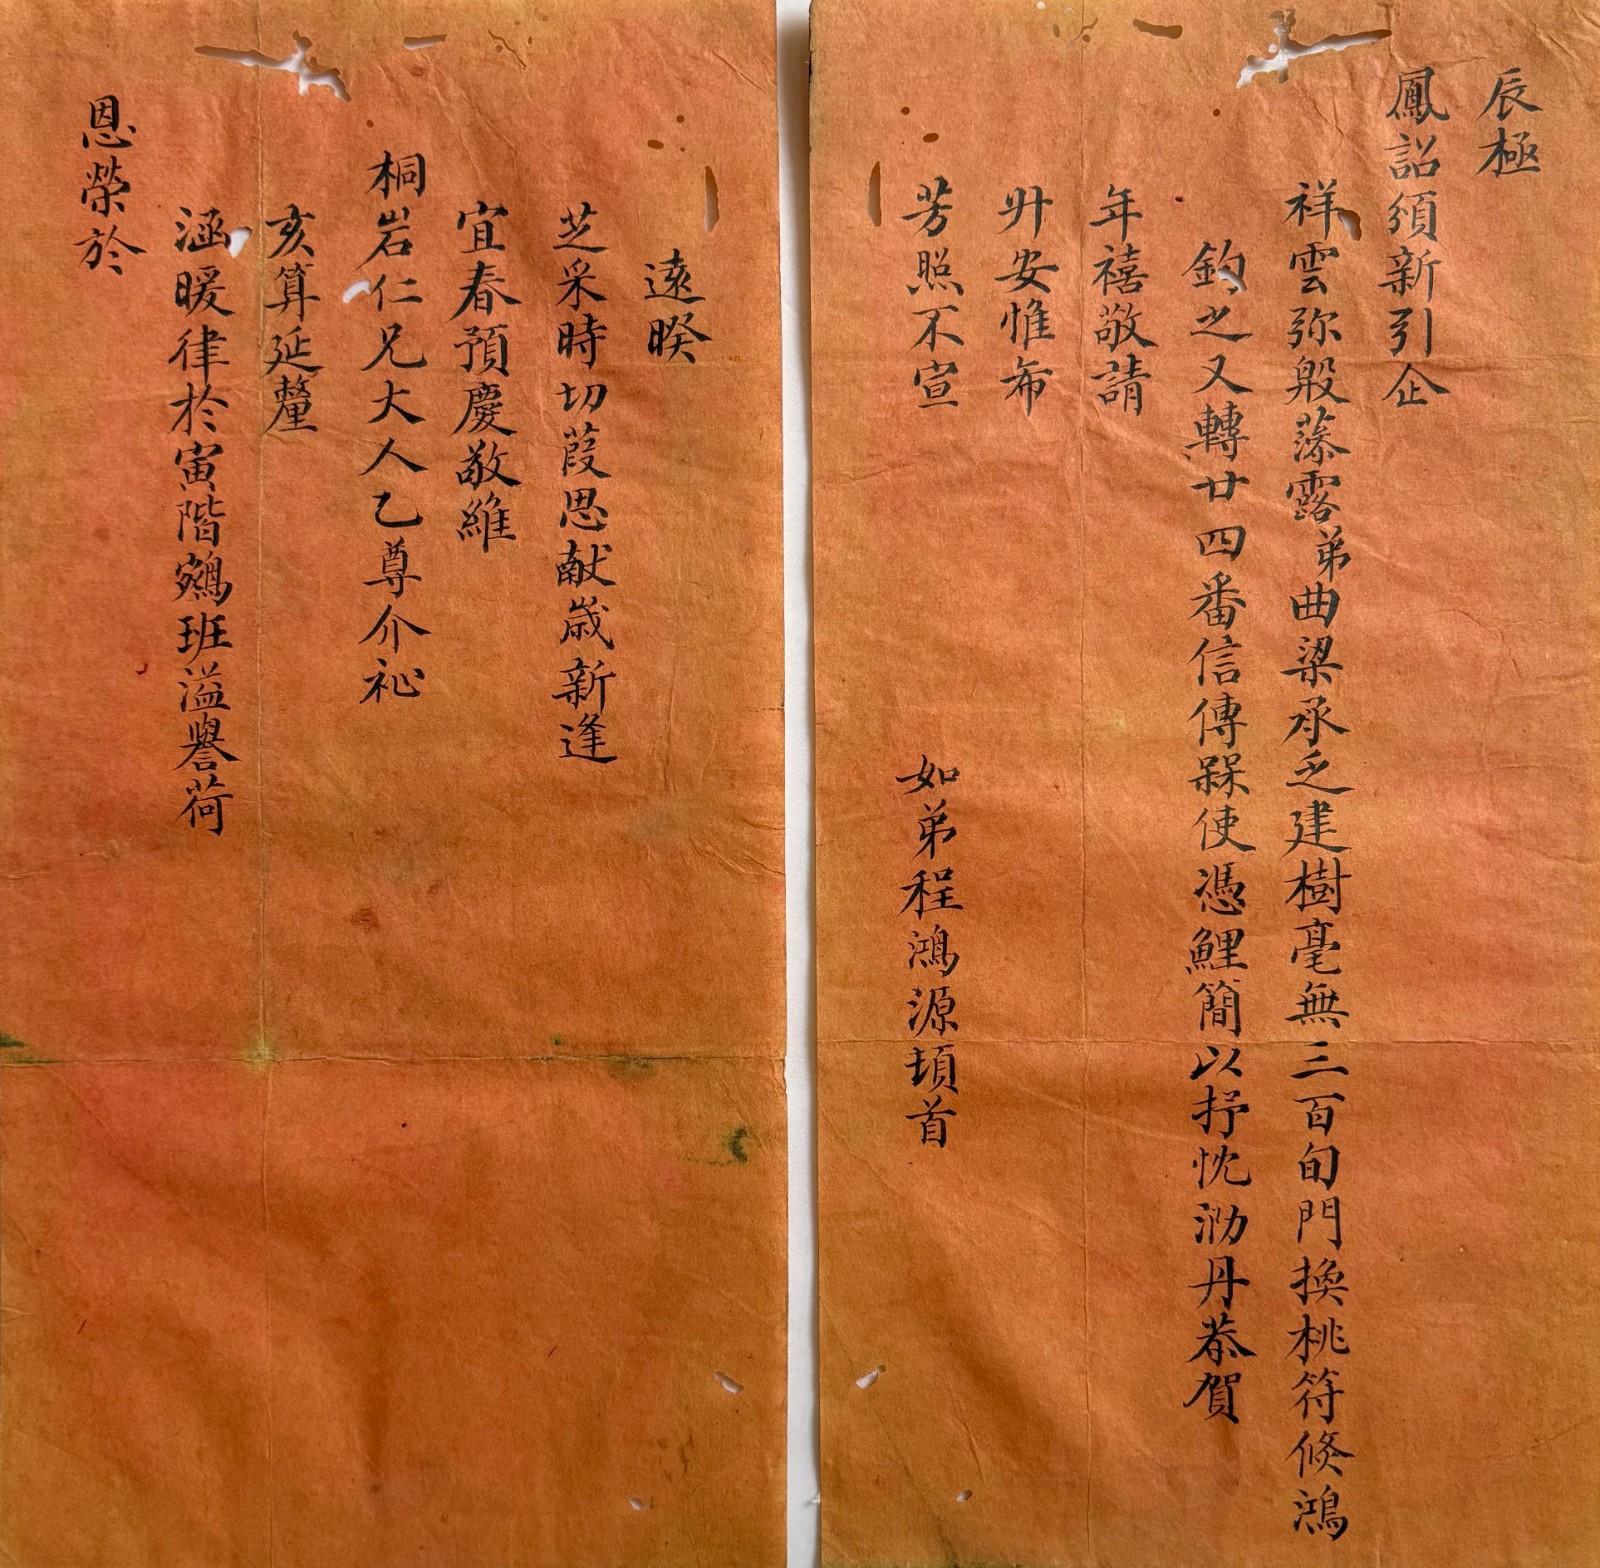 遠暌
芝采時切葭思献歲新逢
宜春預慶敬維
桐岩仁兄大人乙尊介祉
亥算延釐
涵暖律於寅階鵷班溢譽荷
恩榮於
辰極
鳳詔頒新引企
祥雲弥殷露弟曲梁承乏建樹毫無三百旬門換桃符倏鴻
鈞之又轉廿四番信傳槑使憑鯉簡以抒忱泐丹恭賀
年禧敬請
升安惟布
芳照不宣
如弟程鴻源頓首